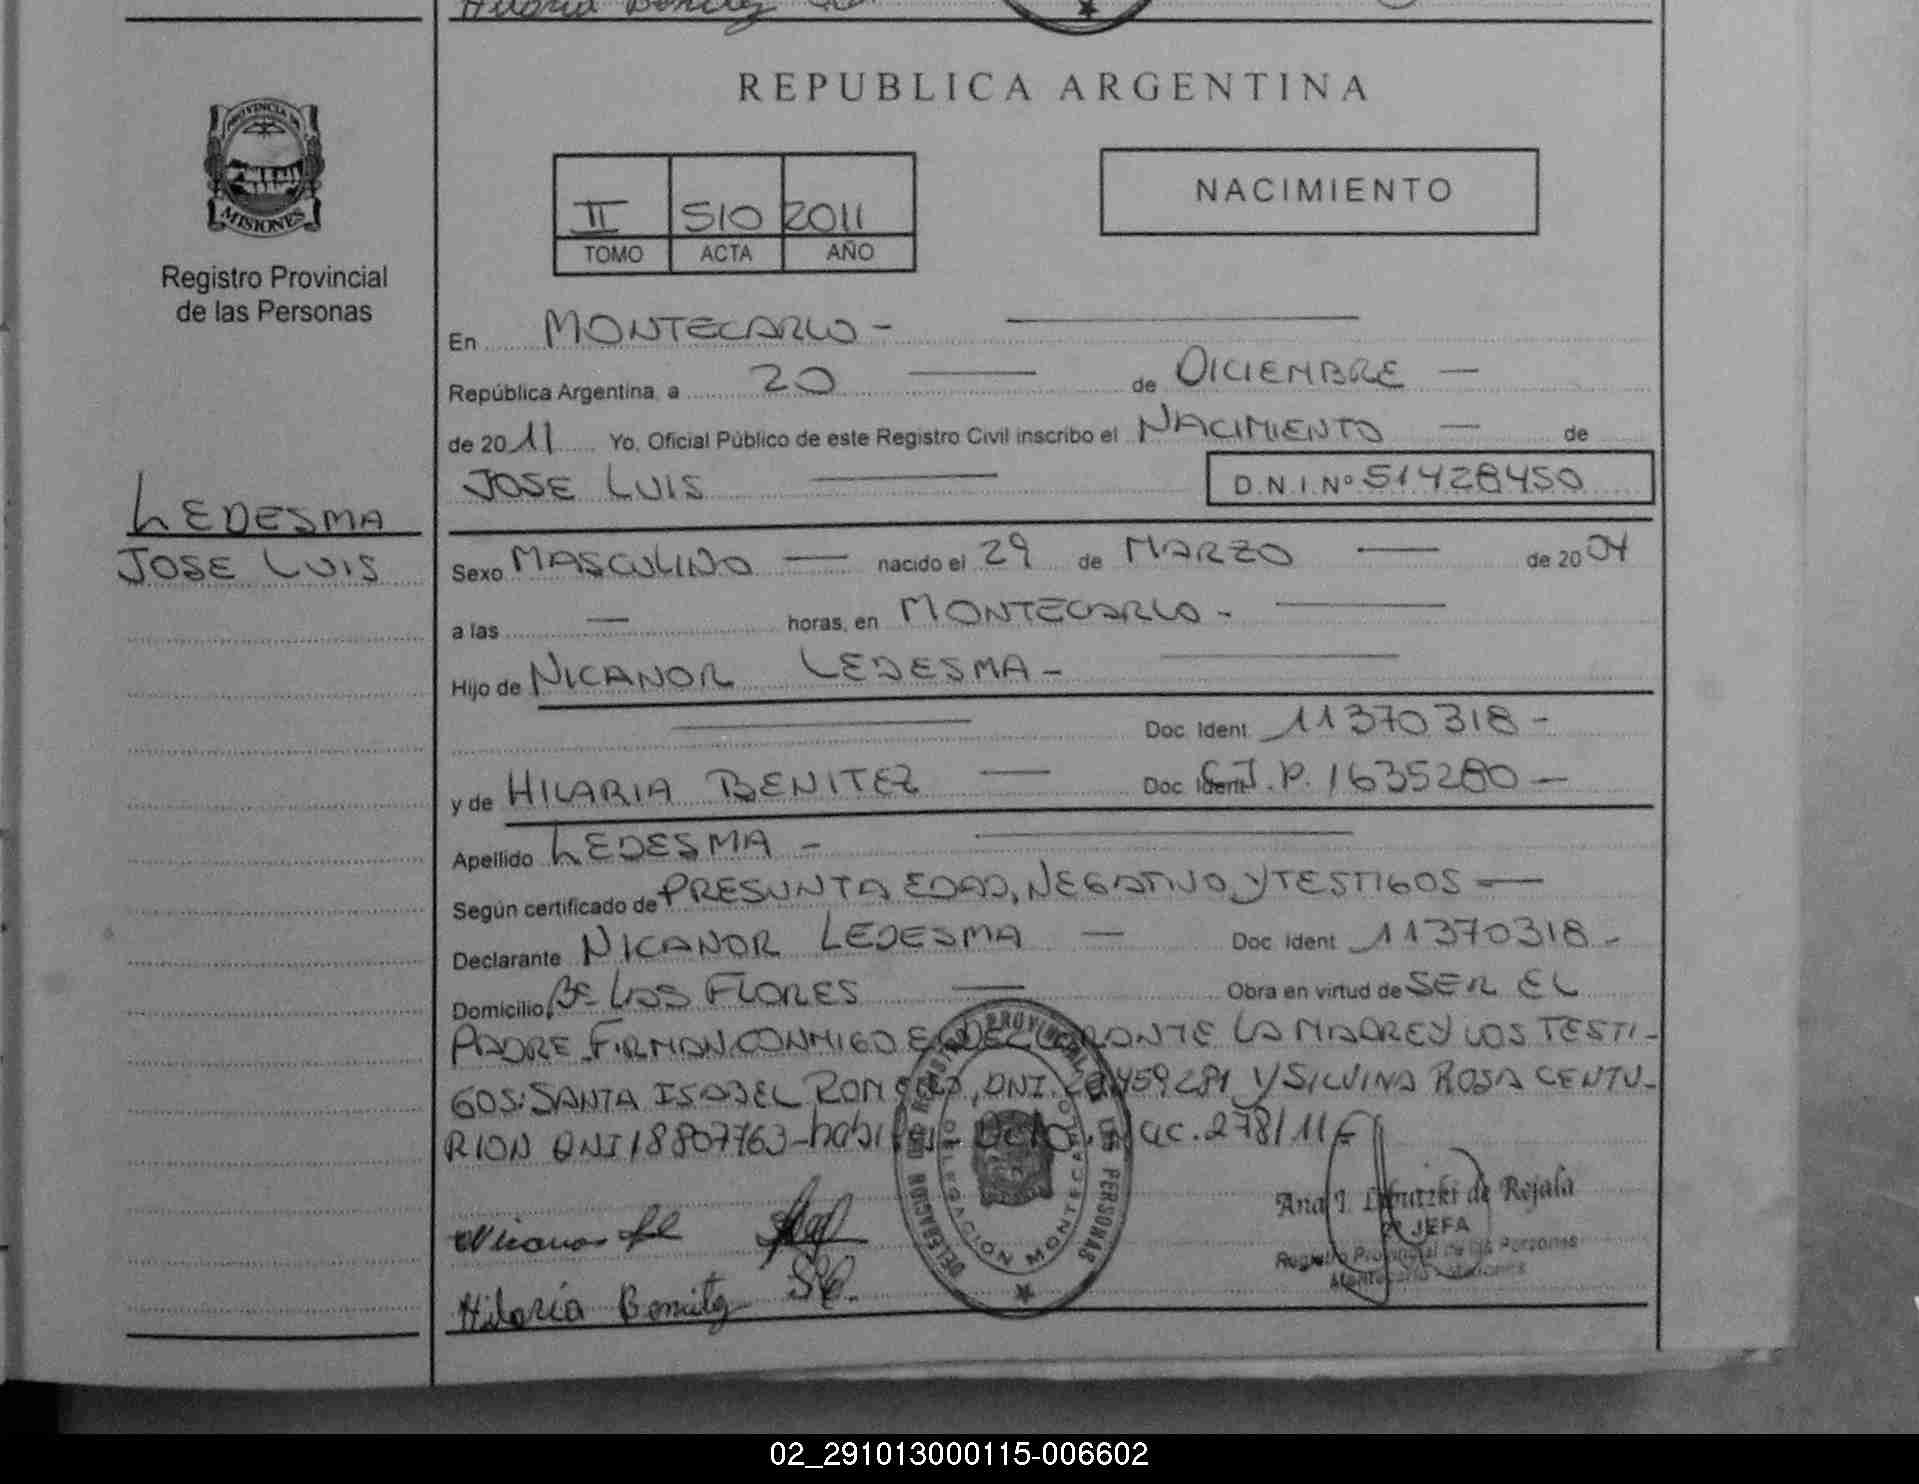 Hilaria Benitez
REPUBLICA ARGENTINA
PROVINCIA DE
MISIONES
Registro Provincial
de las Personas
II 510 2011
TOMO ACTA AÑO
NACIMIENTO
En MONTECARLO -
República Argentina, a 20 de DICIEMBRE
de 2011 Yo, Oficial Público de este Registro Civil inscribo el NACIMIENTO de
JOSE LUIS D.N.I.Nº 51428450
LEDESMA
JOSE LUIS
Sexo MASCULINO nacido el 29 de MARZO de 2004
a las — horas, en MONTECARLO -
Hijo de NICANOR LEDESMA -
Doc. Ident. 11370318 -
y de HILARIA BENITEZ Doc. Ident. C.I.P. 1635280 —
Apellido LEDESMA -
Según certificado de PRESUNTA EDAD, NEGATIVO Y TESTIGOS —
Declarante NICANOR LEDESMA — Doc. Ident. 11370318 -
Domicilio Bº LAS FLORES — Obra en virtud de SER EL
PADRE. FIRMAN CONMIGO EL DECLARANTE LA MADRE Y LOS TESTI-
GOS: SANTA ISABEL ROMERO, DNI. Y SILVINA ROSA CENTU-
RION DNI 18807763 - 278/11
DELEGACION MONTECARLO
PROVINCIAL DE LAS PERSONAS
Ana I. de Rejala
JEFA
Registro Provincial de las Personas
Montecarlo - Misiones
Nicanor
Hilaria Benitez
02_291013000115-006602